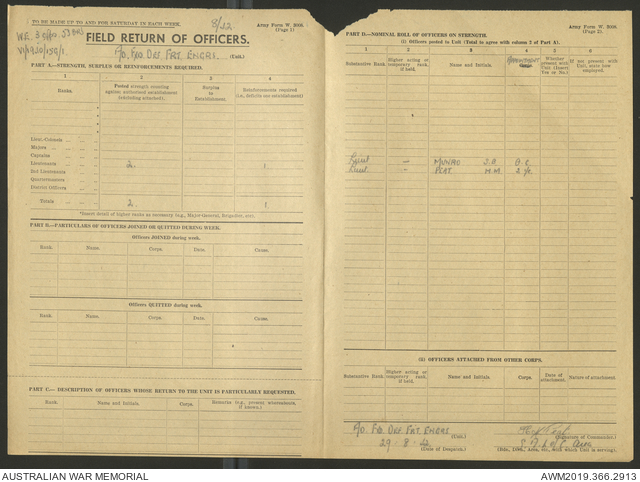 TO BE MADE UP TO AND FOR SATURDAY IN EACH WEEK.
8/22.
Army Form W. 3008.
(Page 1)
FIELD RETURN OF OFFICERS.
(Unit.)
PART A.—STRENGTH, SURPLUS OR REINFORCEMENTS REQUIRED.
1 2 3 4
Ranks Posted strength counting against authorised establishment (excluding attached). Surplus to Establishment. Reinforcements required (i.e., deficits on establishment)
Lieut-Colonels
Majors
Captains
Lieutenants 2. 1
2nd Lieutenants
Quartermasters
District Officers
Totals 2. 1.
*Insert detail of higher ranks as necessary (e.g., Major-General, Brigadier, etc).
PART B.—PARTICULARS OF OFFICERS JOINED OR QUITTED DURING WEEK.
Officers JOINED during week.
Rank. Name. Corps. Date. Cause.
Officers QUITTED during week.
Rank. Name. Corps. Date. Cause.
PART C.— DESCRIPTION OF OFFICERS WHOSE RETURN TO THE UNIT IS PARTICULARLY REQUESTED.
Rank. Name. Corps. Remarks (e.g., present whereabouts, if known.)
Army Form W. 3008.
(Page 2).
PART D.—NOMINAL ROLL OF OFFICERS ON STRENGTH.
(i) Officers posted to Unit (Total to agree with column 2 of Part A).
1 2 3 4 5 6
Substantive Rank Higher acting or temporary rank, if held. Name and Initials. Whether present with Unit (Insert Yes or No.) If not present with Unit, state how employed.
Lieut — MUNRO
Lieut — H.M.
(ii) OFFICERS ATTACHED FROM OTHER CORPS.
Substantive Rank Higher acting or temporary rank, if held. Name and Initials. Corps. Date of attachment. Nature of attachment.
(Unit.)
(Signature of Commander.)
29 . 8 . 42
(Date of Despatch.)
(Bde., Div., Area, etc., with which Unit is serving).
AUSTRALIAN WAR MEMORIAL
AWM2019.366.2913